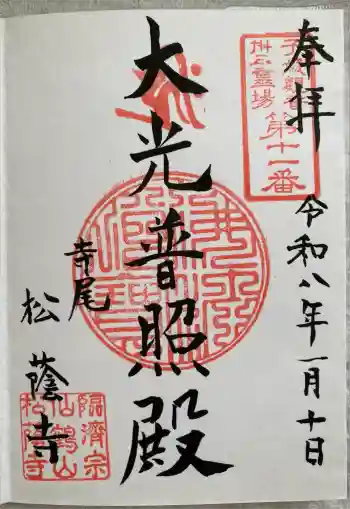 奉拝
令和八年一月十日
第十一番
大光普照殿
寺尾
松蔭寺
臨済宗
仙鶴山
松蔭寺